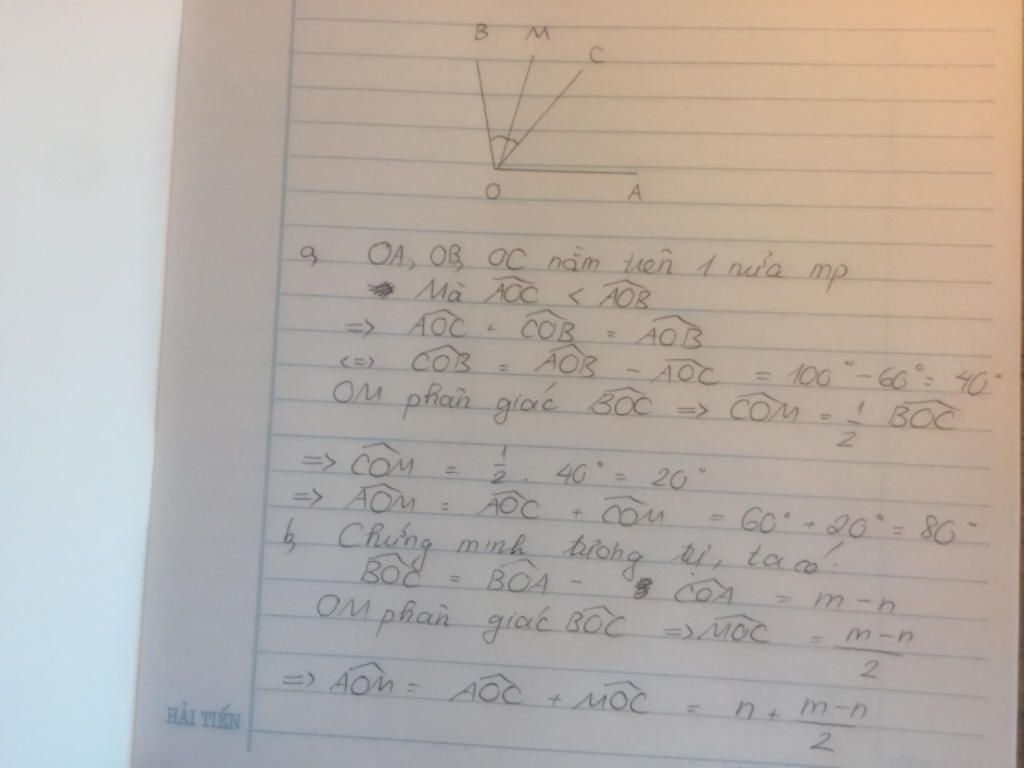 B M C
O A
a, OA, OB, OC nằm trên 1 nửa mp
Mà AOC < AOB
=> AOC + COB = AOB
<=> COB = AOB - AOC = 100° - 60° = 40°
OM phân giác BOC => COM = 1/2 BOC
=> COM = 1/2 . 40° = 20°
=> AOM = AOC + COM = 60° + 20° = 80°
b, Chứng minh tương tự, ta có:
BOC = BOA - COA = m - n
OM phân giác BOC => MOC = (m-n)/2
=> AOM = AOC + MOC = n + (m-n)/2
HẢI TIẾN